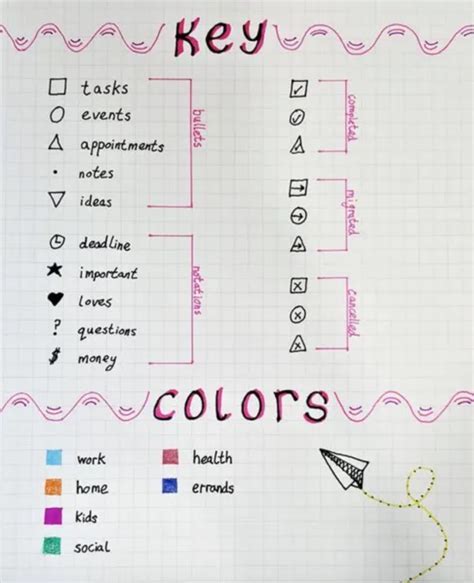 Key
tasks
events
appointments
notes
ideas
bullets
deadline
important
loves
? questions
$ money
notations
completed
migrated
cancelled
COLORS
work
home
kids
social
health
errands